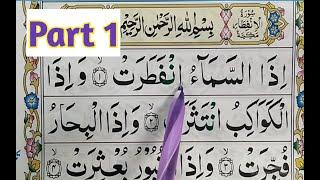 Part 1
سُورَةُ الْاِنْفِطَارِ مَكِّيَّةٌ
بِسْمِ اللّٰهِ الرَّحْمٰنِ الرَّحِيْمِ
اِذَا السَّمَآءُ انْفَطَرَتْ ۝١ وَاِذَا
الْكَوَاكِبُ انْتَثَرَتْ ۝٢ وَاِذَا الْبِحَارُ
فُجِّرَتْ ۝٣ وَاِذَا الْقُبُوْرُ بُعْثِرَتْ ۝٤